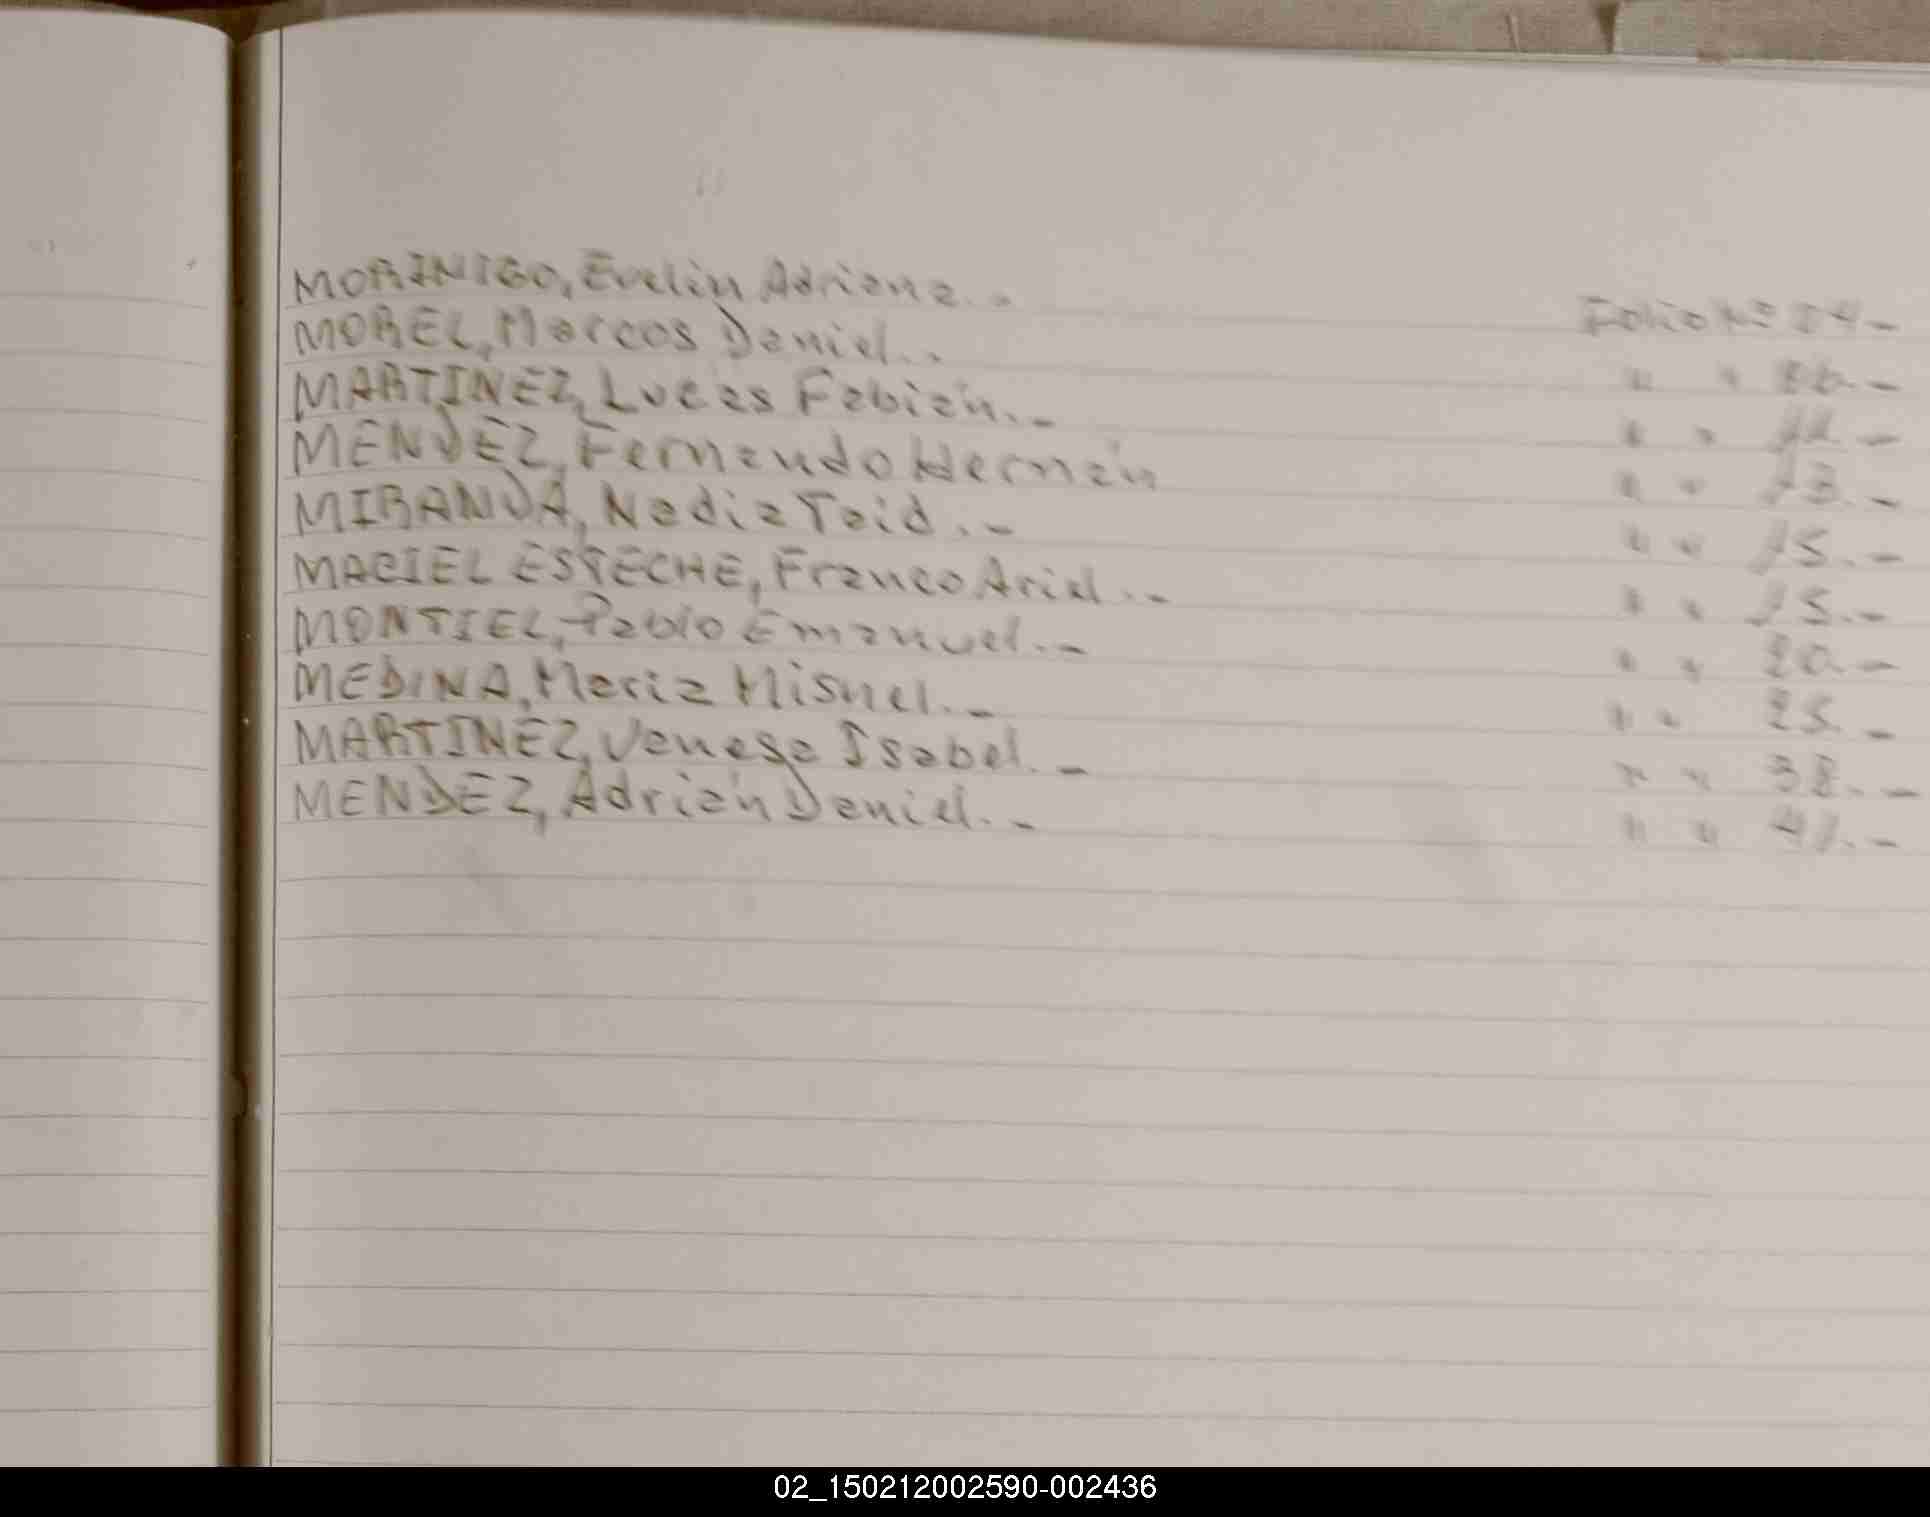 MORINIGO, Evelin Adriana.-
MOREL, Marcos Daniel.-
MARTINEZ, Lucas Fabián.-
MENDEZ, Fernando Hernán
MIRANDA, Nadia Taid.-
MACIEL ESTECHE, Franco Ariel.-
MONTIEL, Pablo Emanuel.-
MEDINA, Maria Misnel.-
MARTINEZ, Vanesa Isabel.-
MENDEZ, Adrián Daniel.-
Folio Nº 04-
" "
" "
" " 13.-
" " 15.-
" " 15.-
" " 20.-
" " 25.-
" " 38.-
" " 41.-
02_150212002590-002436